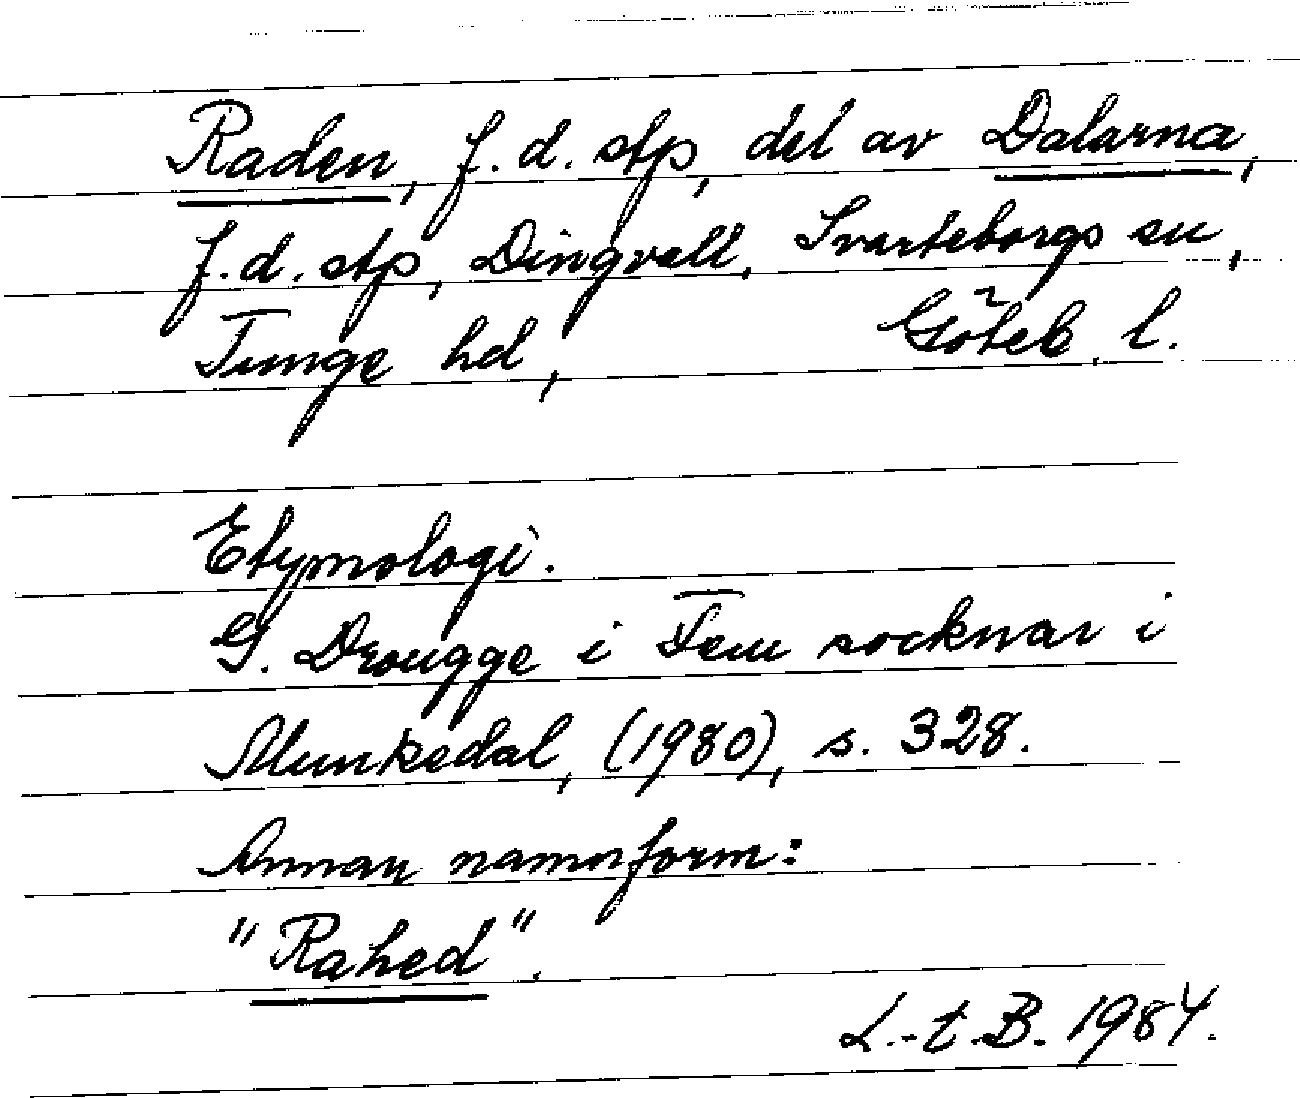 Raden, f.d. stp, del av Dalarna,
f.d. stp, Dingvall, Svarteborgs sn,
Tunge hd, Göteb. l.
Etymologi.
G. Drougge i Fem socknar i
Munkedal, (1980), s. 328.
Annan namnform:
"Rahed".
L.-t.B. 1984.